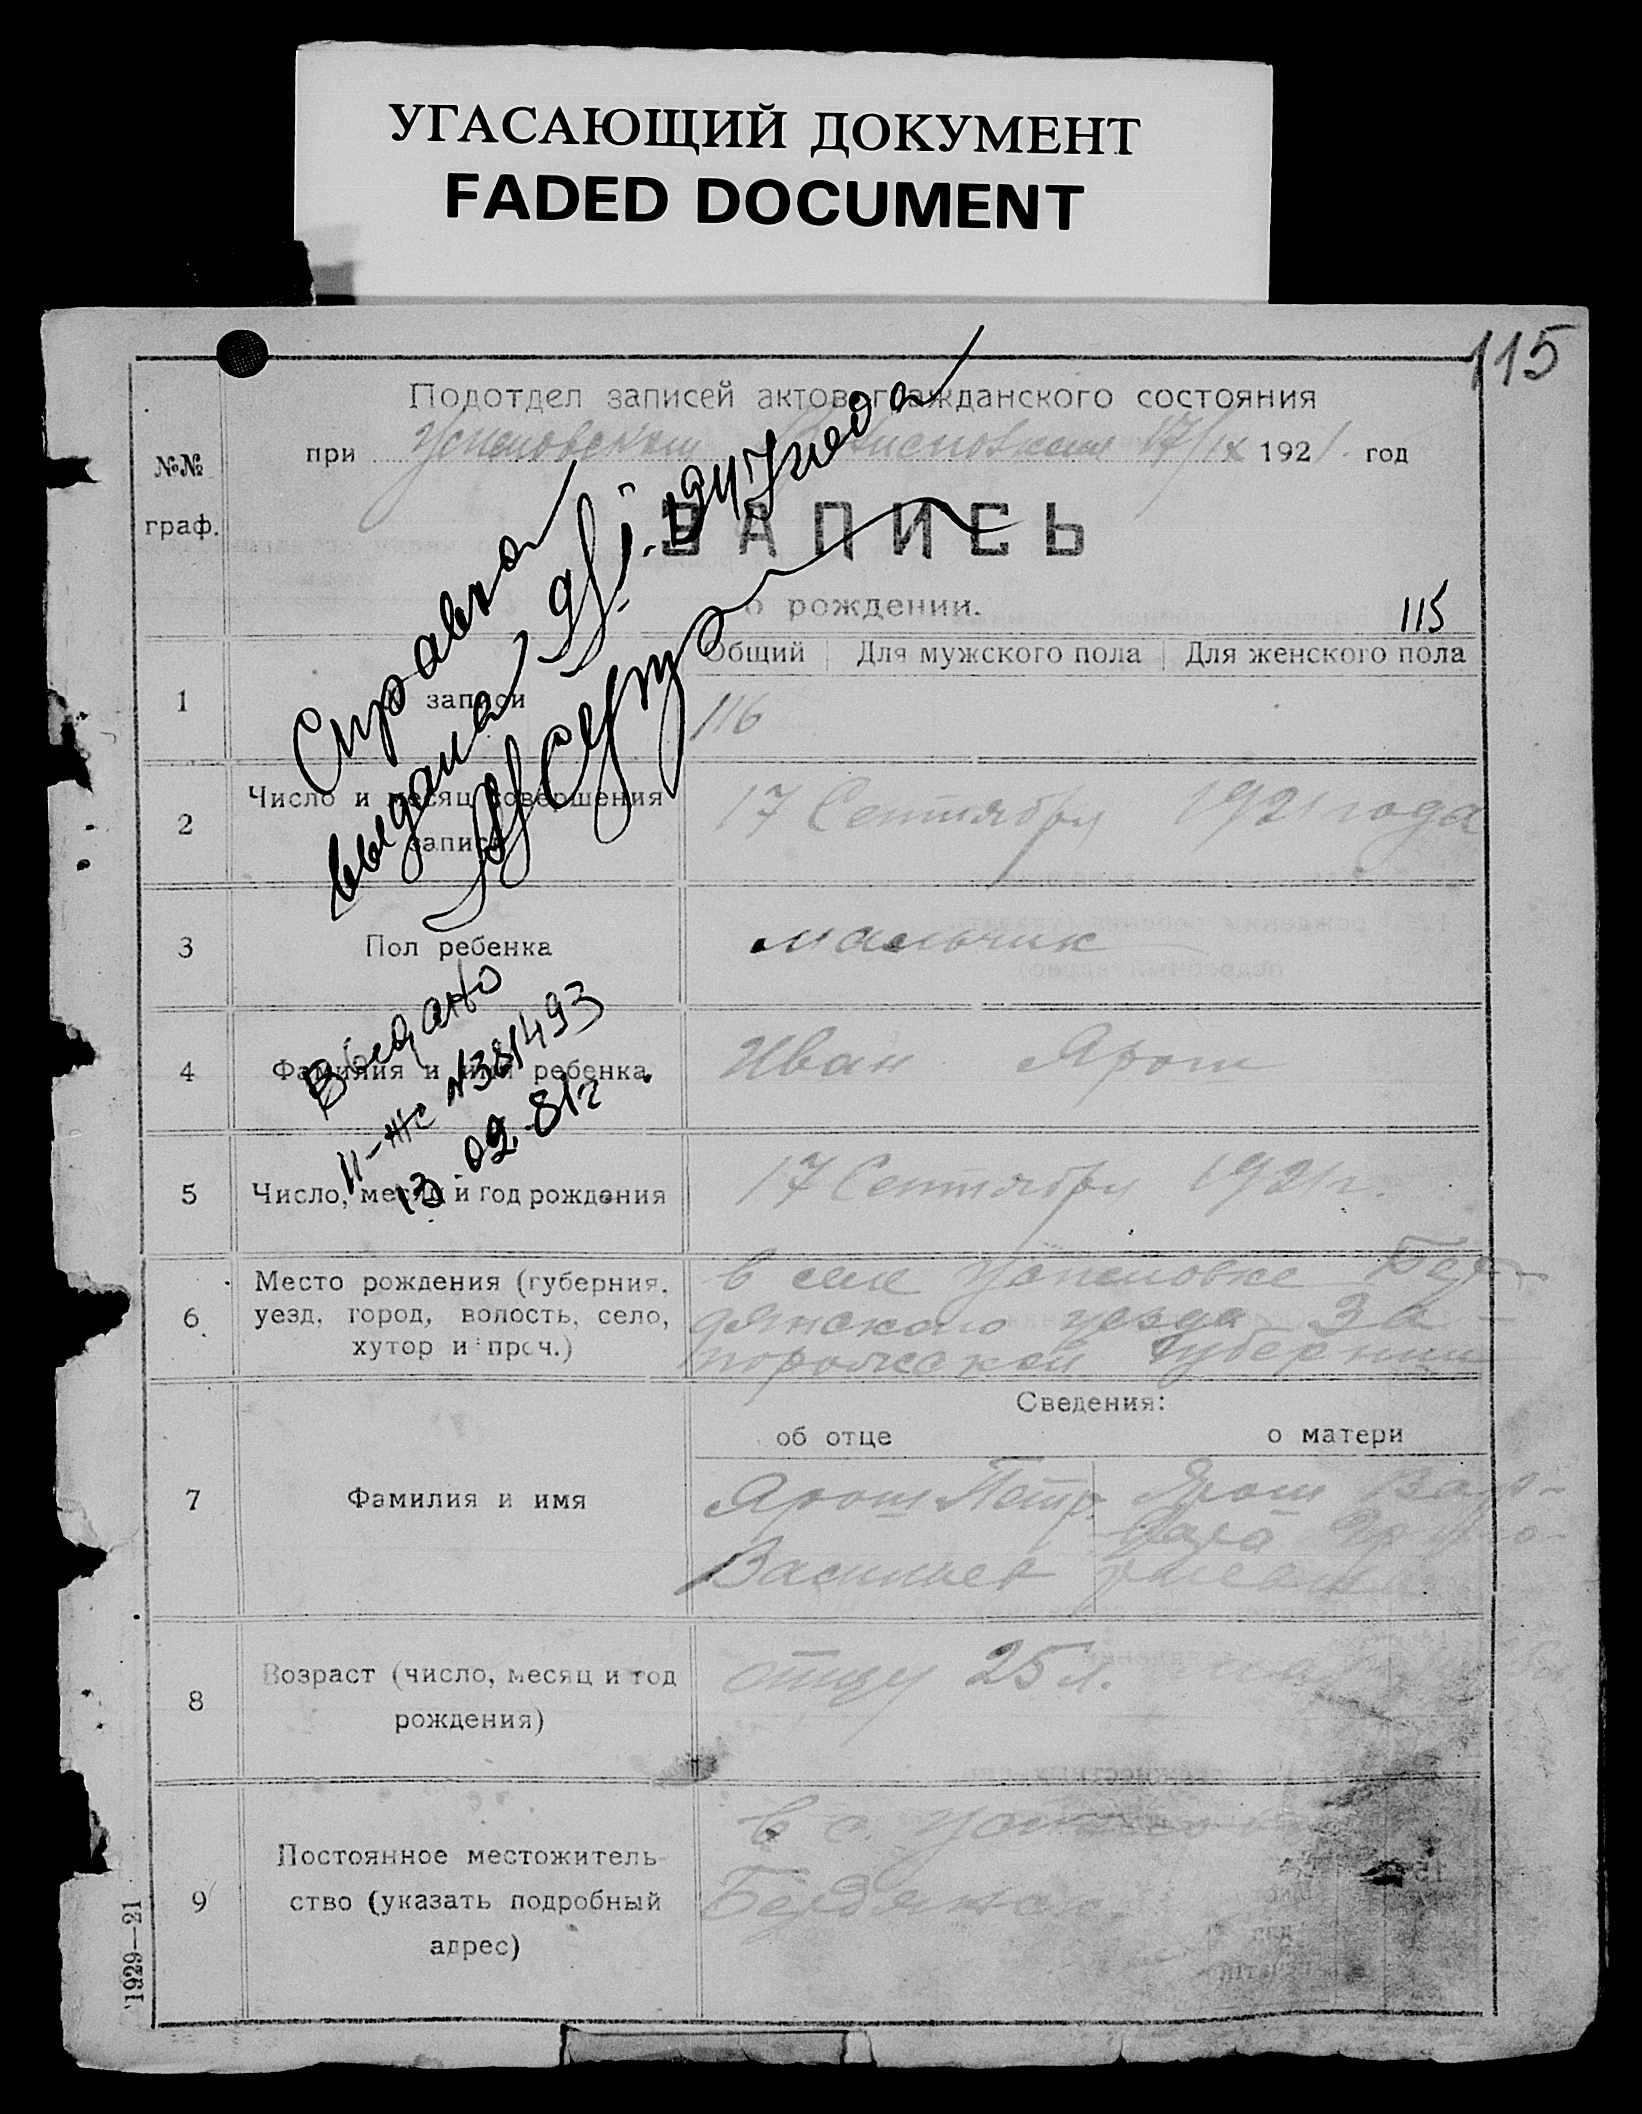 УГАСАЮЩИЙ ДОКУМЕНТ
FADED DOCUMENT
115
Подотдел записей актов гражданского состояния
при Успеновском 17/IX 1921. год
№№
граф.
ЗАПИСЬ
о рождении.
115
Справка
выдана 1947 года
Общий Для мужского пола Для женского пола
1 записи 116
2 Число и месяц совершения
записи
17 Сентября 1921 года
3 Пол ребенка мальчик
Выдано
II-ЖС №381493
13.02.81г
4 Фамилия и имя ребенка Иван Ярош
5 Число, месяц и год рождения 17 Сентября 1921 г.
6 Место рождения (губерния,
уезд, город, волость, село,
хутор и проч.)
в селе Успеновке Бер-
дянского уезда За-
порожской Губернии
Сведения:
об отце о матери
7 Фамилия и имя
Ярош Петр.
Васильев
Ярош Вар-
вара
8 Возраст (число, месяц и год
рождения)
отцу 25 л.
9 Постоянное местожитель-
ство (указать подробный
адрес)
в с.
1929—21